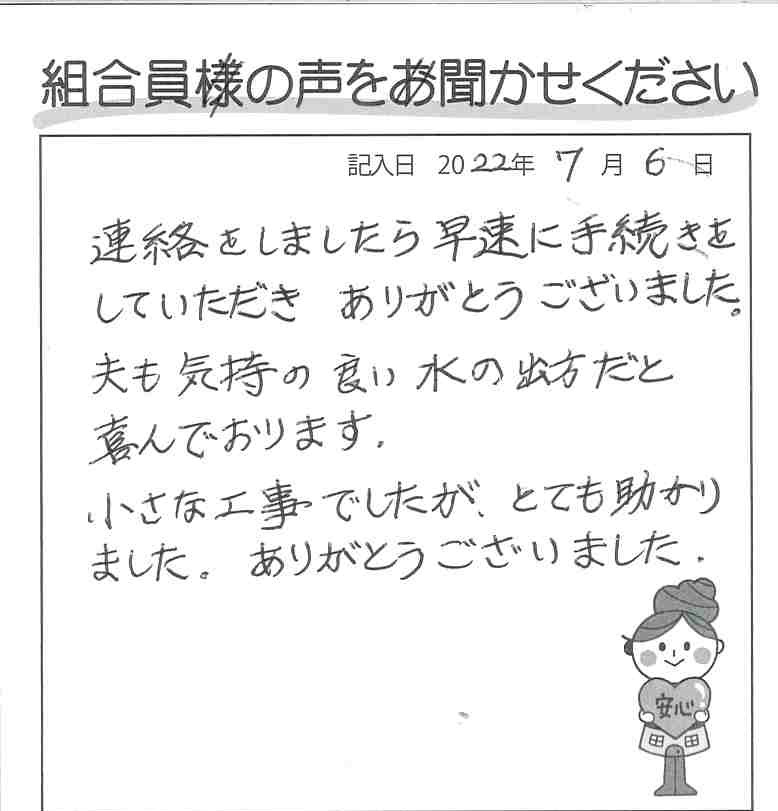 組合員様の声をお聞かせください
記入日 2022年 7月 6日
連絡をしましたら早速に手続きを
していただき ありがとうございました。
夫も気持の良い水の出方だと
喜んでおります.
小さな工事でしたが、とても助かり
ました。ありがとうございました.
安心